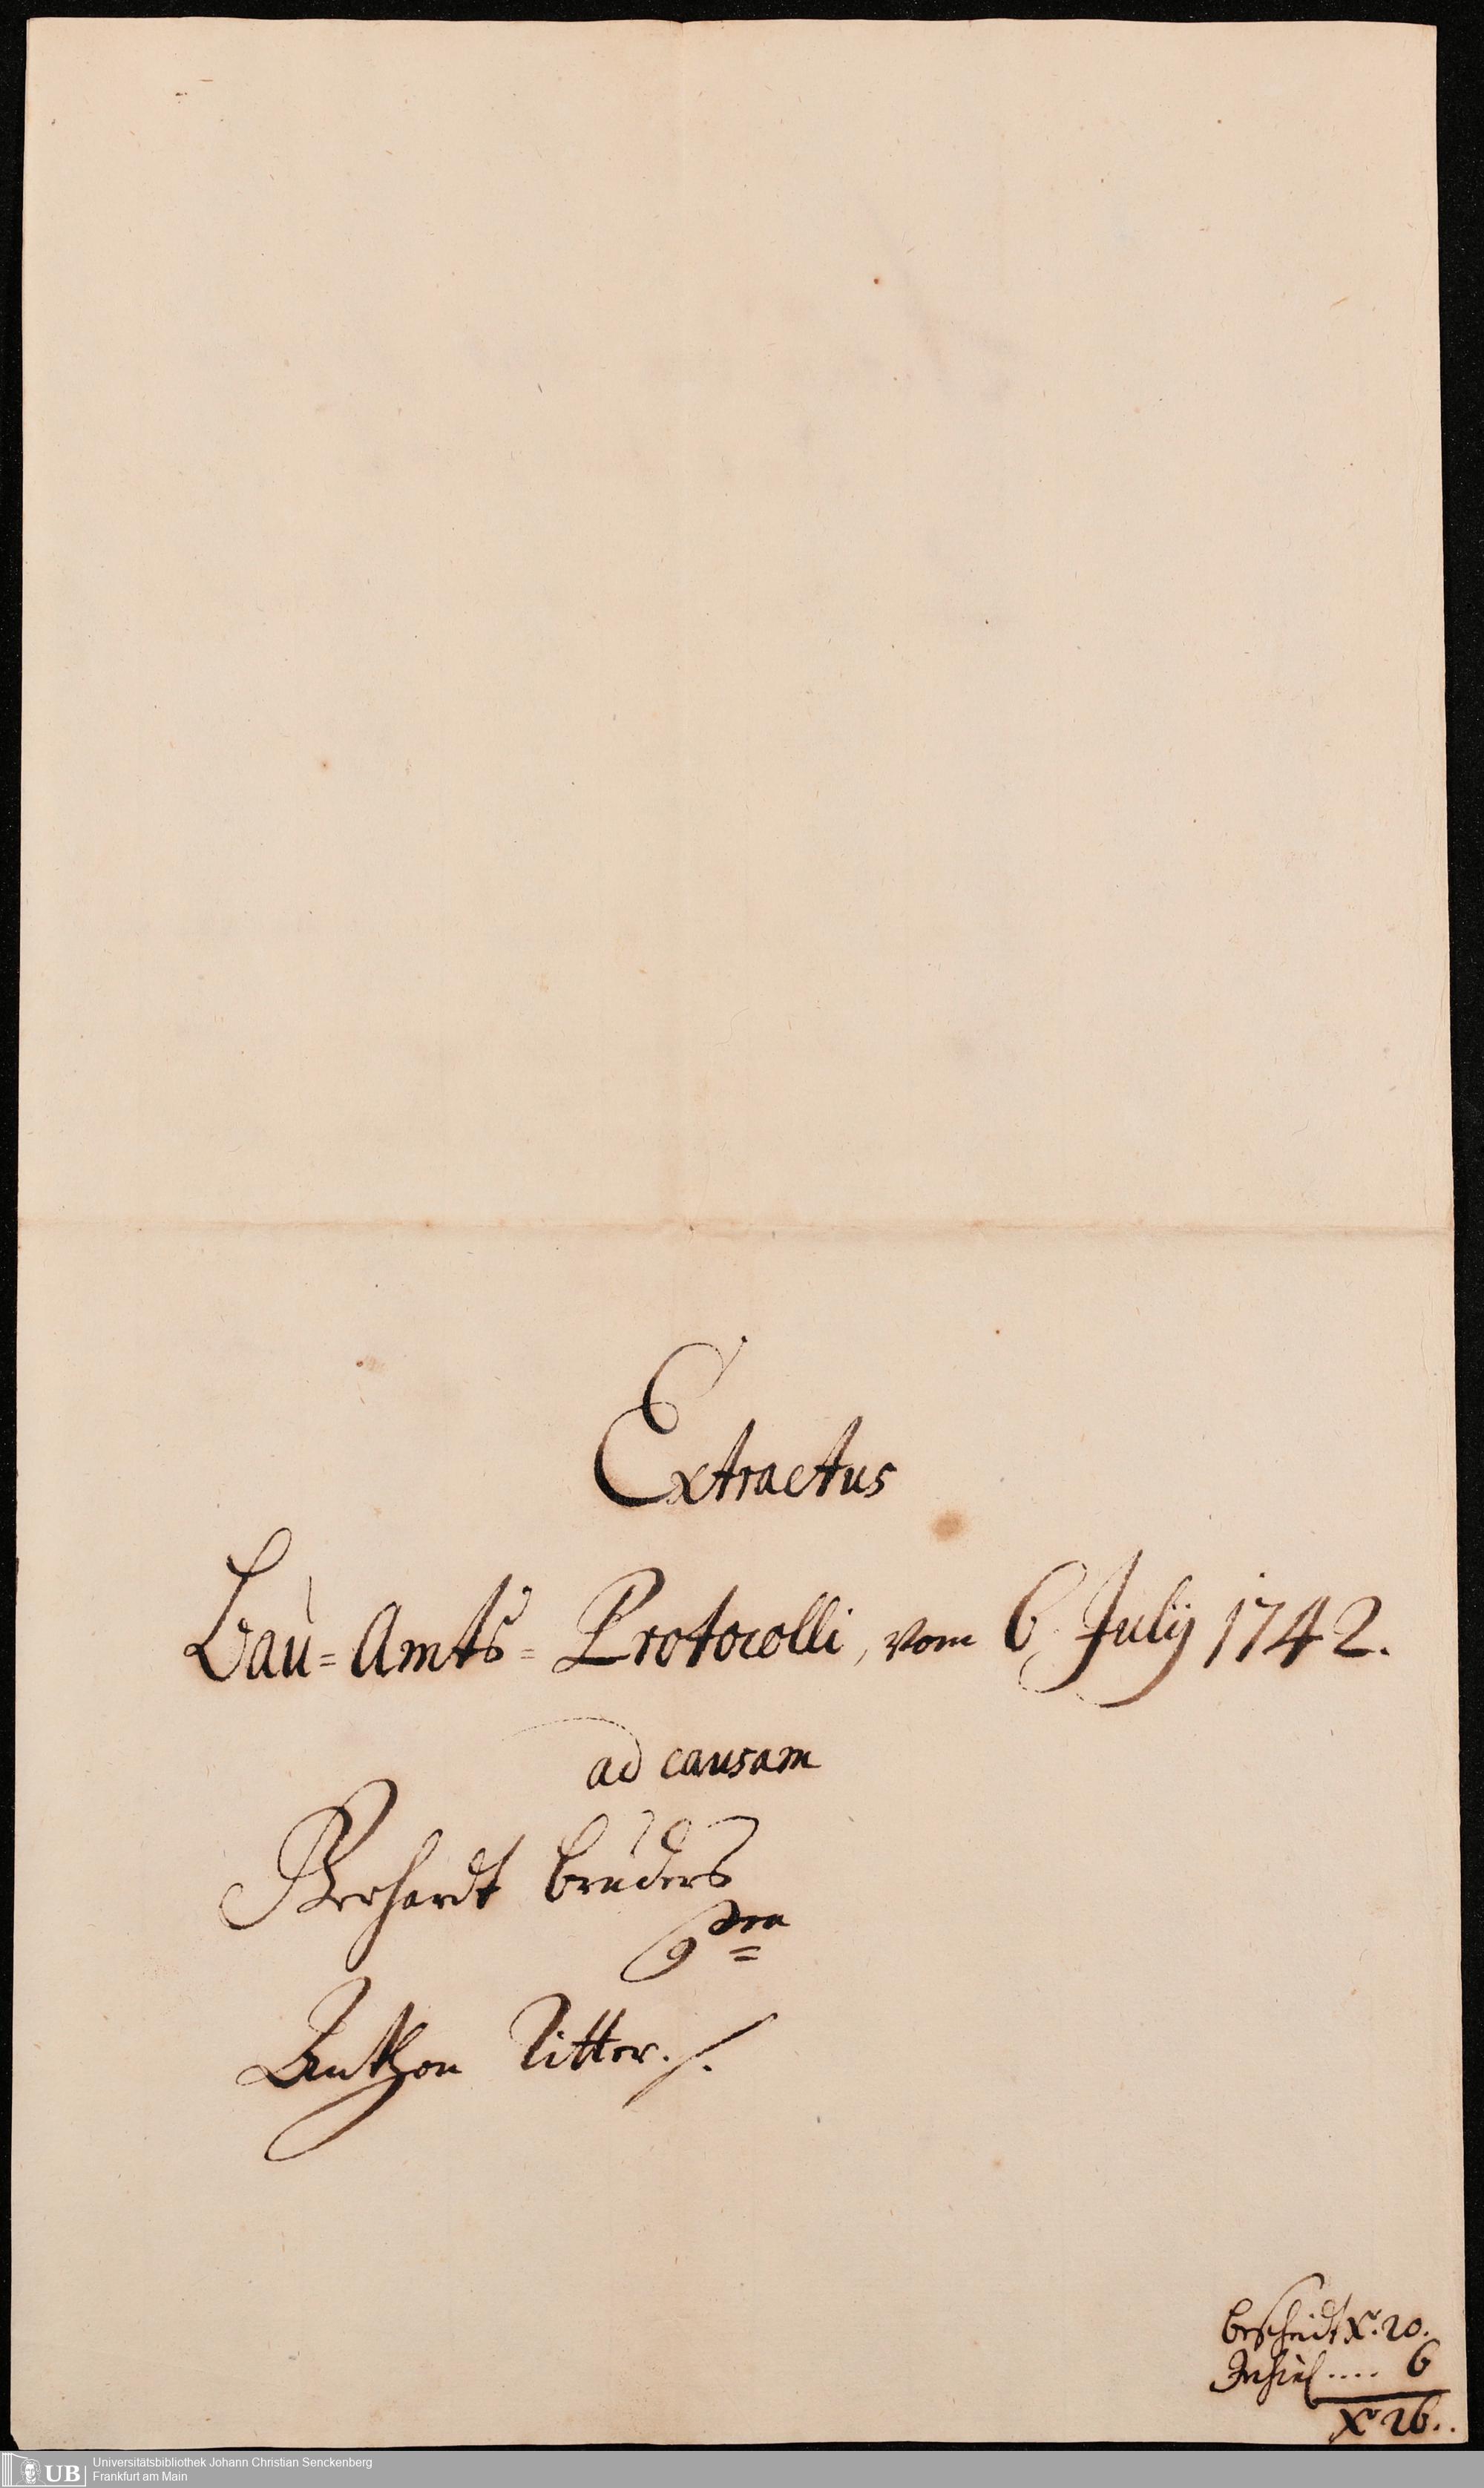 Extractus
Bau=Amts=Protocolli, vom 6. Julij 1742.
ad causam
Gerhardt Bruders
Anthon Ritter ./.
Bescheidt Xr. 20.
.... 6
Xr 26..
UB
Universitätsbibliothek Johann Christian Senckenberg
Frankfurt am Main